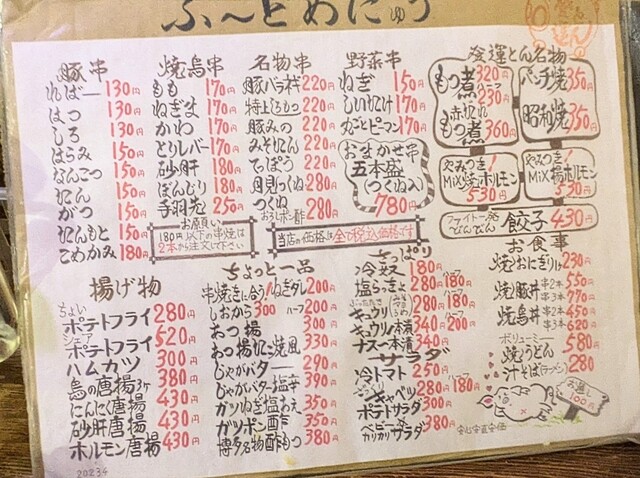 ふ〜どめにゅう
豚串
ればー 130円
はつ 130円
しろ 130円
はらみ 150円
なんこつ 150円
たん 150円
がつ 150円
たんもと 150円
こめかみ 180円
焼鳥串
もも 170円
ねぎま 170円
かわ 170円
とりレバー 170円
砂肝 180円
ぼんじり 180円
手羽先 250円
お願い
180円以下の串焼は
2本から注文して下さい
名物串
豚バラ 220円
特上しろもつ 220円
豚みの 220円
みそにんにく 220円
てっぽう 220円
月見つくね 280円
つくね
おろしポン酢 280円
野菜串
ねぎ 150円
しいたけ 170円
丸ごとピーマン 170円
おまかせ串
五本盛
(つくね入)
780円
当店の価格は全て税込価格です
金運とん名物
もつ煮 320円
ハーフ 230円
赤から
もつ煮 360円
ペッチ焼 350円
昭和焼 350円
やみつき!
MiX焼ホルモン
530円
やみつき!
MiX揚ホルモン
530円
ファイト一発
餃子 430円
お食事
焼おにぎり 230円
焼豚丼 串2本 550円
串3本 770円
焼鳥丼 串2本 450円
串3本 620円
ボリューミー
焼うどん 580円
汁そば(ラーメン) 280円
お通し
100円
揚げ物
ちょい
ポテトフライ 280円
シェア
ポテトフライ 520円
ハムカツ 300円
鳥の唐揚3ヶ 380円
にんにく唐揚 430円
砂肝唐揚 430円
ホルモン唐揚 430円
ちょっと一品
串焼きに合う!ねぎダレ 200円
しおから 300 ハーフ 200円
あつ揚 300円
あつ揚たこ焼風 330円
じゃがバター 290円
じゃがバター塩辛 390円
ガツねぎ塩あえ 350円
ガツポン酢 350円
博多名物酢もつ 380円
さっぱり
冷奴 180円
塩らっきょ 280円 ハーフ 180円
キュウリ 280円 180円
キュウリ一本漬 340円 200円
ナス一本漬 340円
サラダ
冷トマト 250円
キャベツ 280円 ハーフ 180円
ポテトサラダ 300円
ベビー
カリカリサラダ 380円
安心安定安価
2023.4